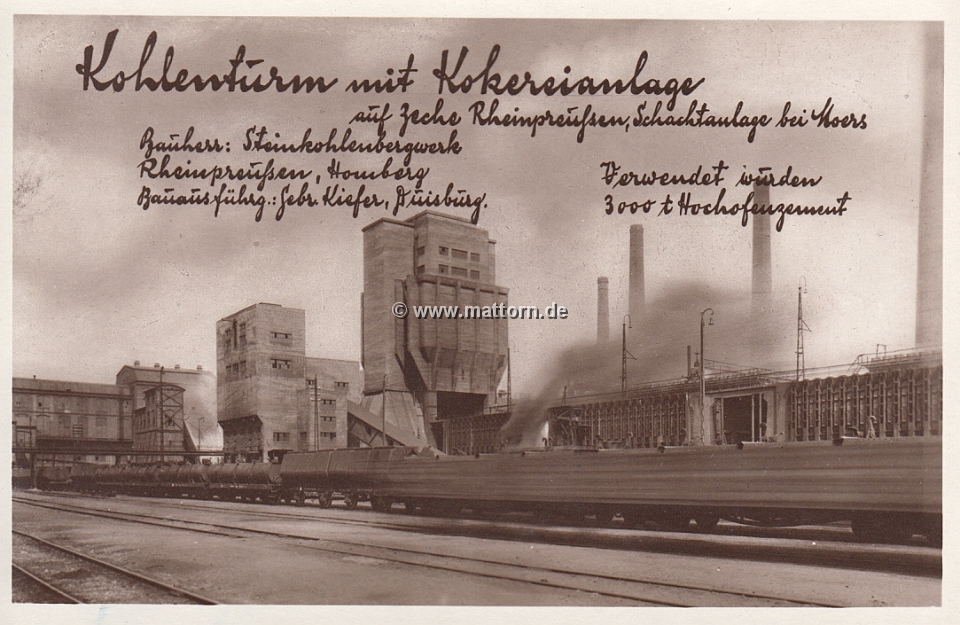 Kohlenturm mit Kokereianlage
auf Zeche Rheinpreußen, Schachtanlage bei Moers
Bauherr: Steinkohlenbergwerk
Rheinpreußen, Homberg
Bauausführg.: Gebr. Kiefer, Duisburg.
Verwendet wurden
3000 t Hochofenzement
© www.mattorn.de